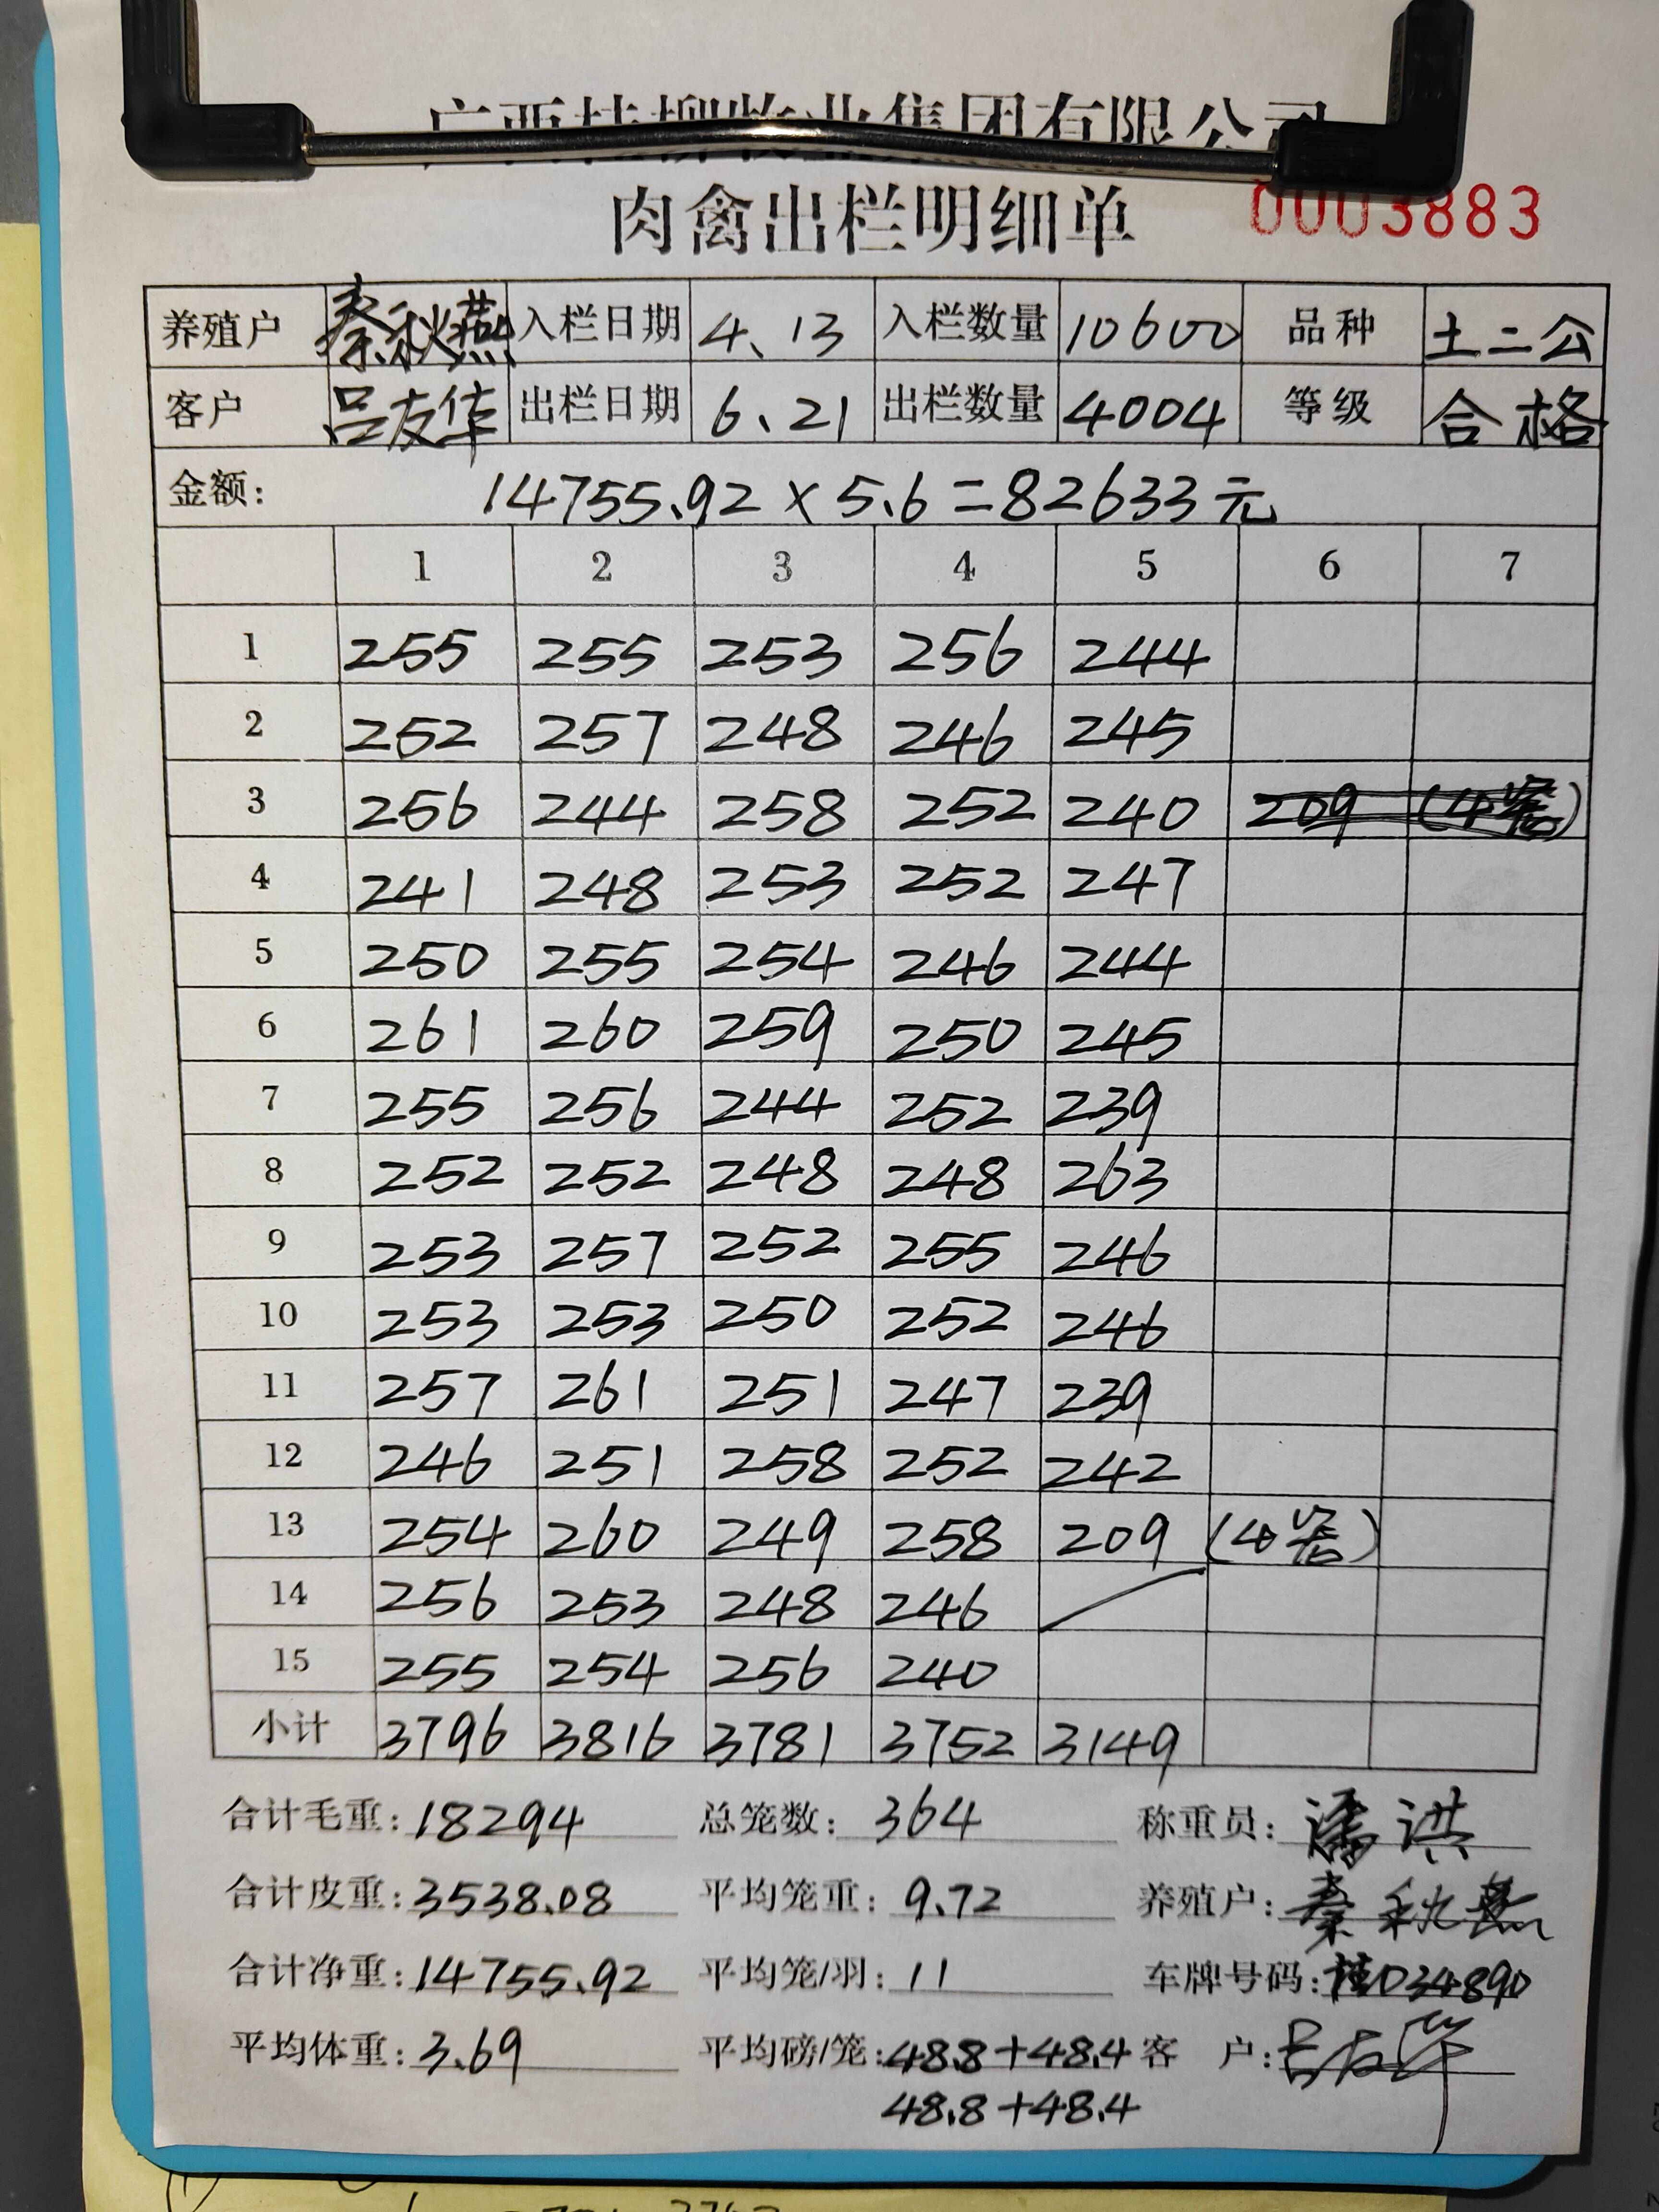 广西桂柳牧业集团有限公司
肉禽出栏明细单 0003883
养殖户 秦秋燕 入栏日期 4、13 入栏数量 10600 品种 土二公
客户 吕友华 出栏日期 6、21 出栏数量 4004 等级 合格
金额: 14755.92 × 5.6 = 82633元
1 2 3 4 5 6 7
1 255 255 253 256 244
2 252 257 248 246 245
3 256 244 258 252 240 209
4 241 248 253 252 247
5 250 255 254 246 244
6 261 260 259 250 245
7 255 256 244 252 239
8 252 252 248 248 263
9 253 257 252 255 246
10 253 253 250 252 246
11 257 261 251 247 239
12 246 251 258 252 242
13 254 260 249 258 209
14 256 253 248 246
15 255 254 256 240
小计 3796 3816 3781 3752 3149
合计毛重: 18294 总笼数: 364 称重员: 潘洪
合计皮重: 3538.08 平均笼重: 9.72 养殖户: 秦秋燕
合计净重: 14755.92 平均笼/羽: 11 车牌号码: 桂D34890
平均体重: 3.69 平均磅/笼: 48.8+48.4 客 户: 吕友华
48.8+48.4